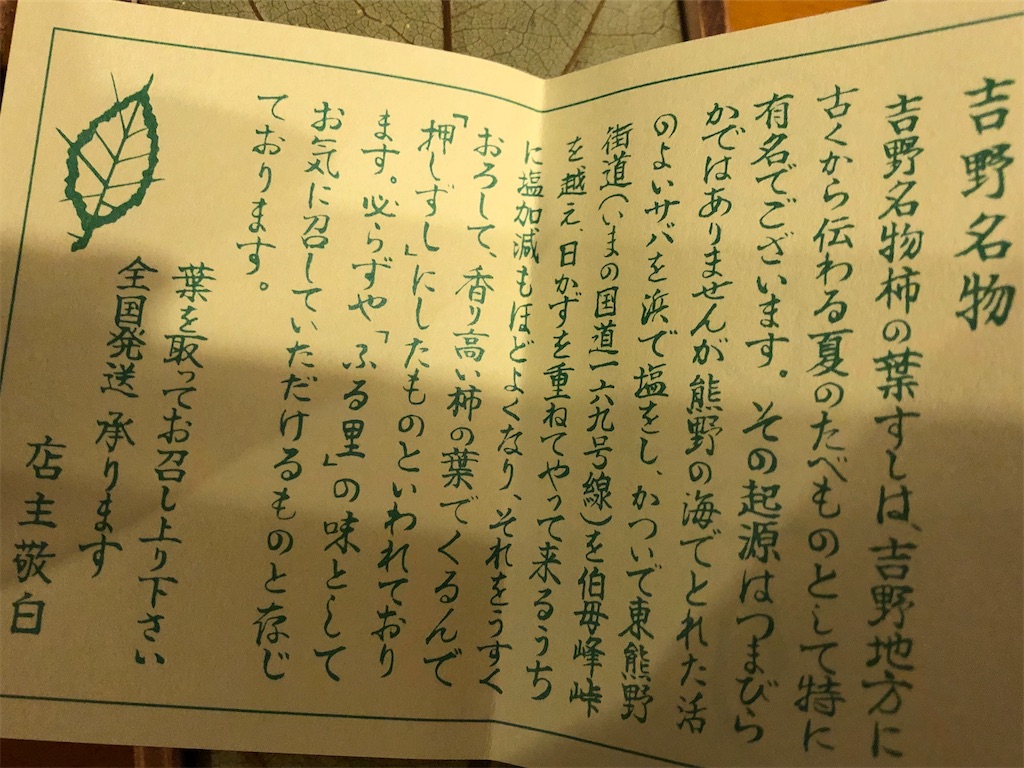 吉野名物
吉野名物柿の葉すしは、吉野地方に
古くから伝わる夏のたべものとして特に
有名でございます。その起源はつまびら
かではありませんが熊野の海でとれた活
のよいサバを浜で塩をし、かついで東熊野
街道(いまの国道一六九号線)を伯母峰峠
を越え、日かずを重ねてやって来るうち
に塩加減もほどよくなり、それをうすく
おろして、香り高い柿の葉でくるんで
「押しずし」にしたものといわれており
ます。必らずや「ふる里」の味として
お気に召していただけるものと存じ
ております。
葉を取ってお召し上り下さい
全国発送 承ります
店主敬白